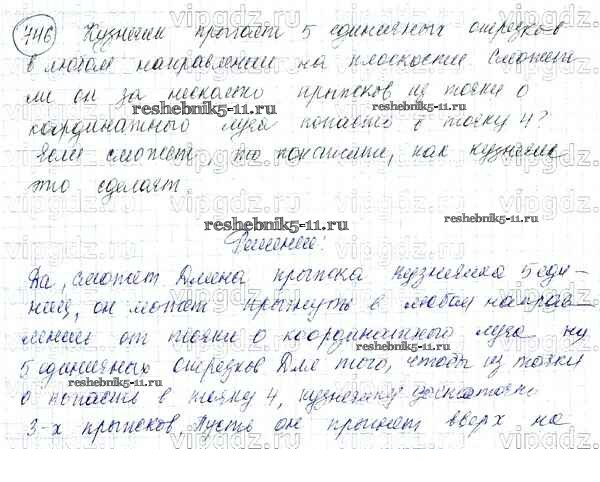 746 Кузнечик прыгает 5 единичных отрезков
в любом направлении на плоскости. Сможет
ли он за несколько прыжков из точки 0
координатного луча попасть в точку 4?
Если сможет, то покажите, как кузнечик
это сделает.
Решение:
Да, сможет. Длина прыжка кузнечика 5 еди-
ниц, он может прыгнуть в любом направ-
лении от точки 0 координатного луча на
5 единичных отрезков. Для того, чтобы из точки
0 попасть в точку 4, кузнечику достаточно
3-х прыжков. Пусть он прыгнет вверх на
reshebnik5-11.ru
reshebnik5-11.ru
reshebnik5-11.ru
reshebnik5-11.ru
reshebnik5-11.ru
vipgdz.ru